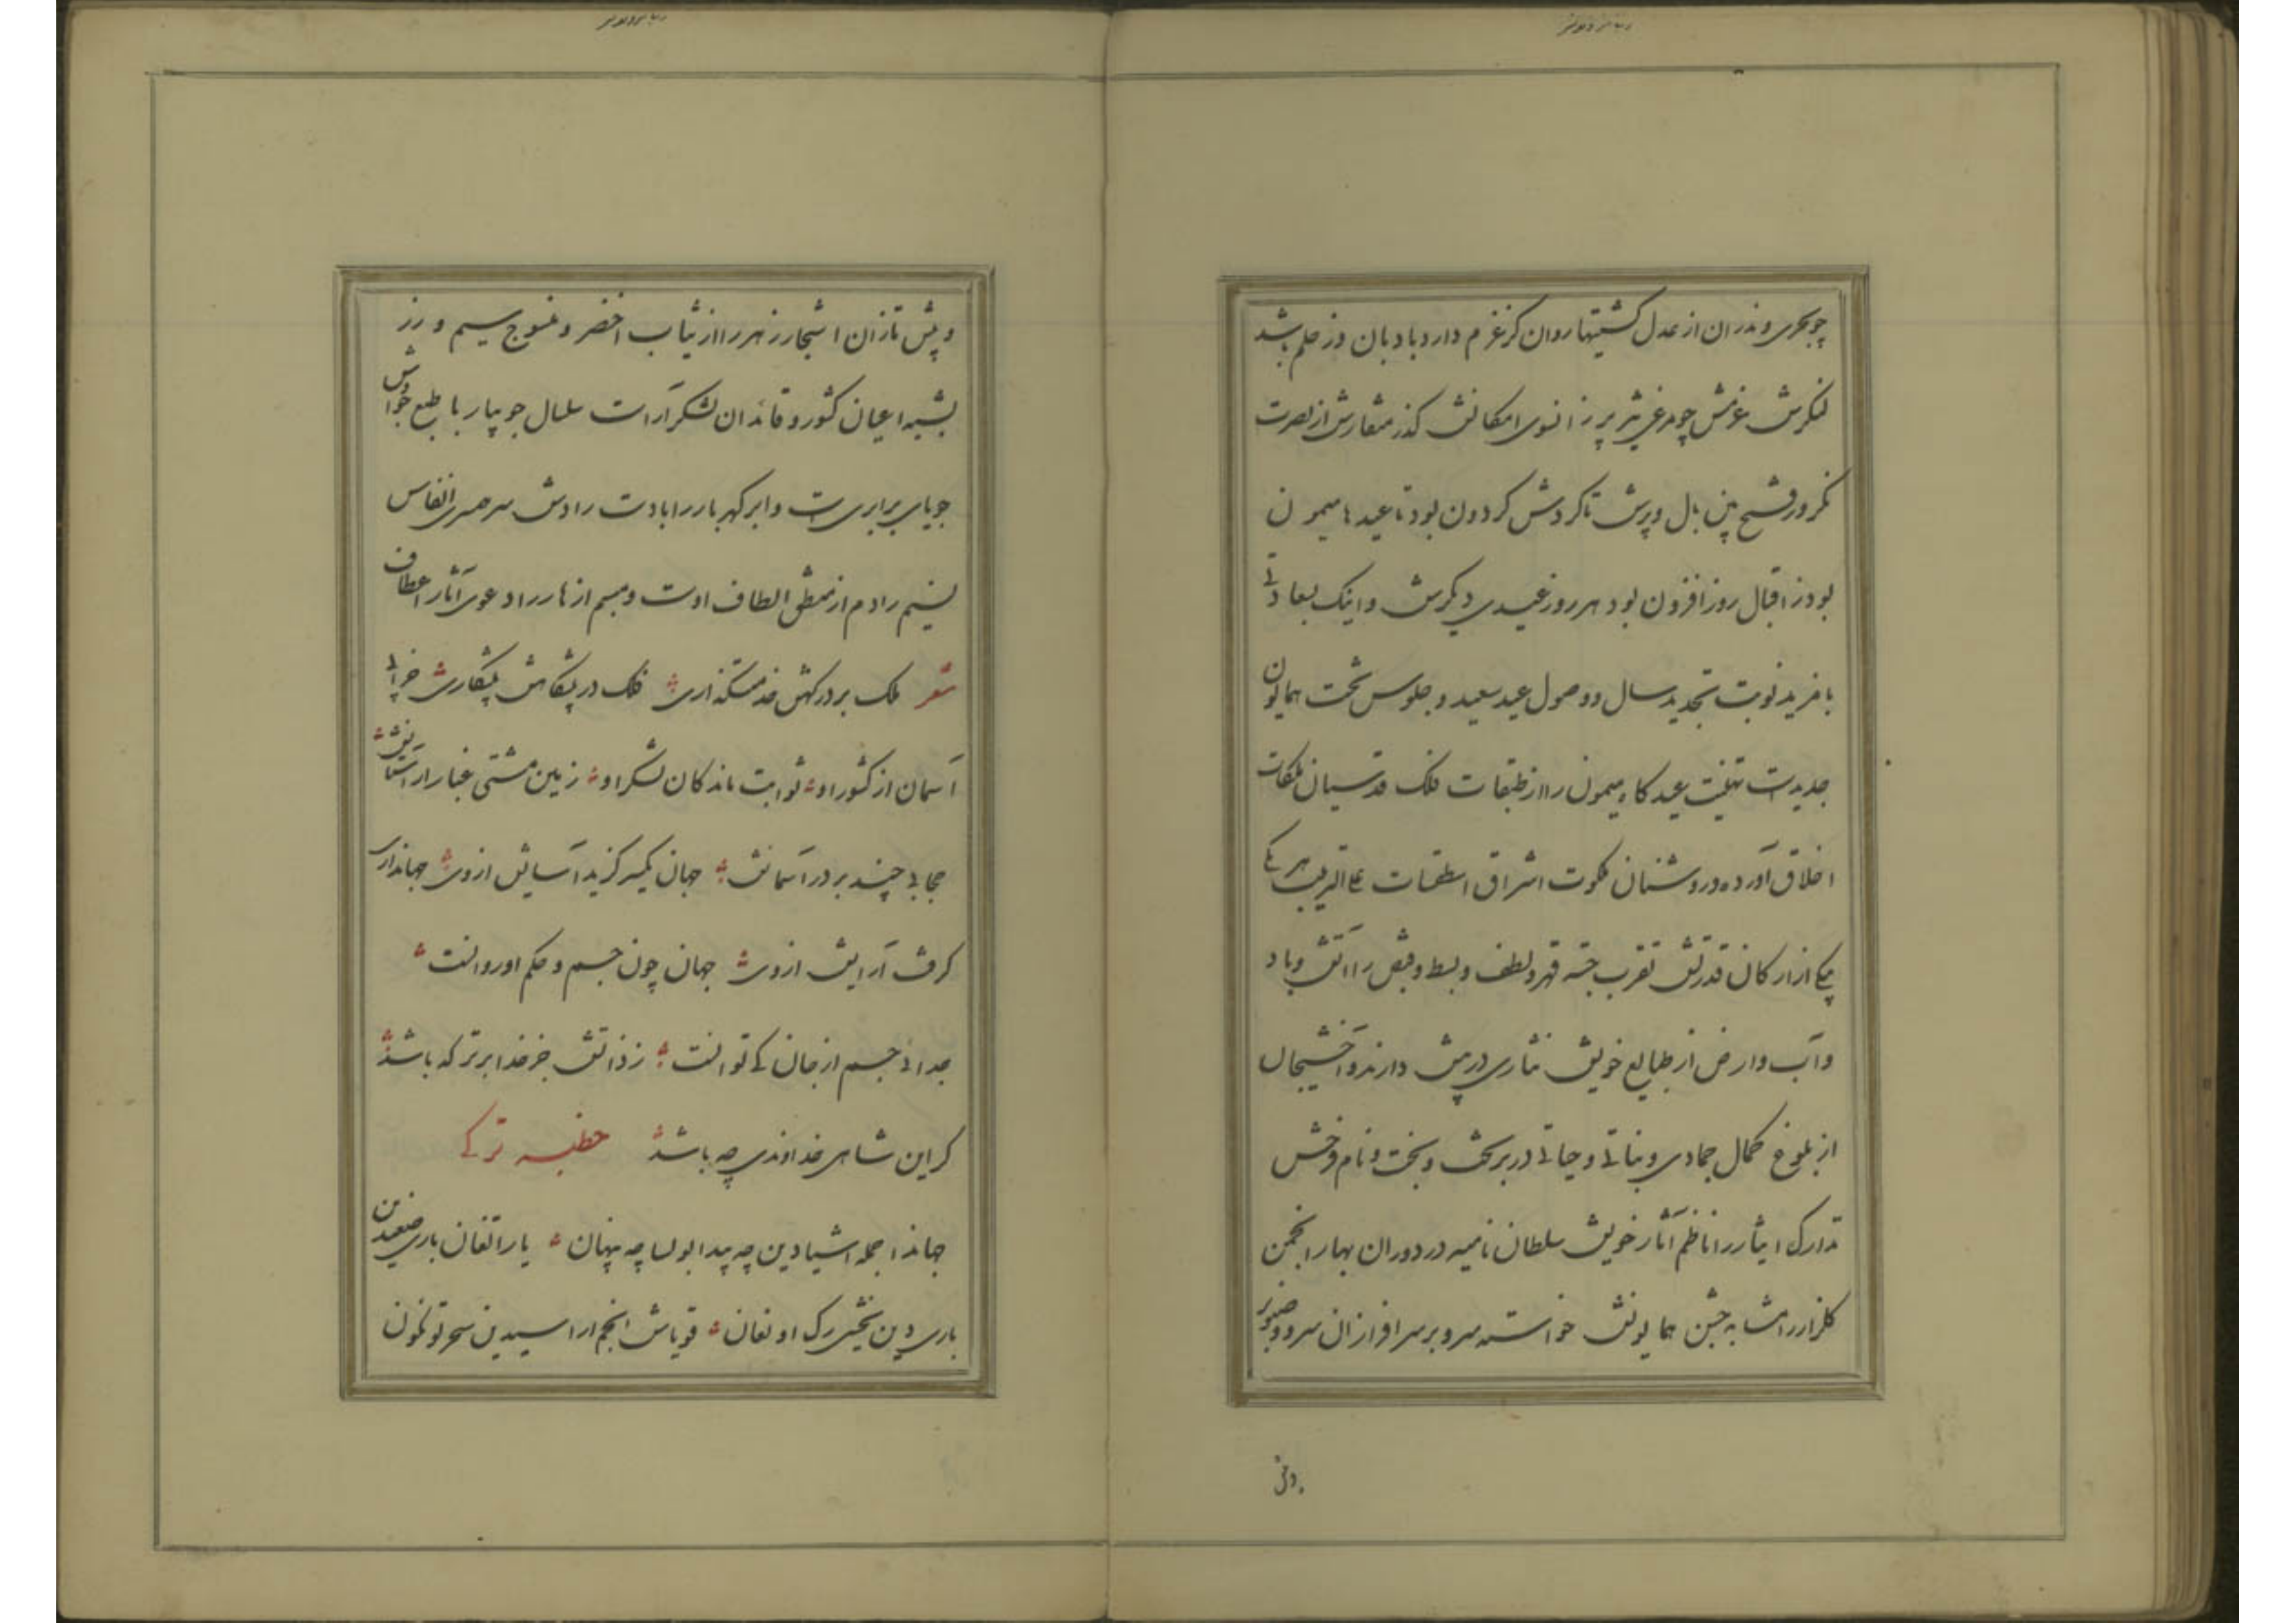 چو بحری و ندران از عدل کشتیها روان کز عزم دارد بادبان وز حلم باشد
لنکرش عزمش چو مرغی تیز پر زانسوی امکانش کذر منقارش از نصرت
نکر وز فتح بین بال و پرش تا کردش کردون بود تا عیدها میمون
بود ز اقبال روز افزون بود هر روز عیدی دیکرش و اینک بسعادتی
با فرید نوبت تجدید سال و وصول عید سعید و جلوس تخت همایون
جدیدست تهنیت عید کاه میمون را از طبقات فلک قدسیان ملکات
اخلاق آورده و روشنان ملکوت اشراق اسطقسات علی الترتیب هر یکی
یکی از ارکان قدرتش تقرب جسته قهر و لطف و بسط و قبض را آتش و باد
و آب و ارض از طبایع خویش نثاری در پیش دارند و آخشیجان
از بلوغ کمال جمادی و نباتی و حیاتی در بر تخت و بخت و نام فرخش
تدارک ایثار را ناظم آثار خویش سلطان نامیه در دوران بهار انجمن
کلزار را مشابه جشن همایونش خواسته سرو بر سر افرازان سرو و صنوبر
و پیش تازان اشجار زهر را از ثیاب اخضر و منسوج سیم و زر
بشبیه اعیان کشور و قائدان لشکر آراست سلسال جویبار با طبع خواش
جویای برابریست و ابر کهربار را با دست رادش سر همسری انفاس
نسیم را دم از منطق الطاف اوست و مبسم ازهار را دعوی آثار اعطاف
شعر ملک بر درکهش خدمتکذاری فلک در پیشکاهش پیشکاری خرابی
آسمان از کشور او ثوابت ماندکان لشکر او زمین مشتی غبار از آستانش
حجابی چند بر در آسمانش جهان یکسر کزید آسایش ازوی جهانداری
کرفت آرایش ازوی جهان چون جسم و حکم او روانست
جدائی جسم از جان کی توانست ز ذاتش جز خدا برتر که باشد
کر این شاهی خداوندی چه باشد خطبه ترکی
جهاندا جمله اشیادین چه پیدا بولسا چه پنهان یاراتغان باری صنعیدین
باری دین یخشی رک اونغان قویاش انجم ارا سیدین سحر توتخون